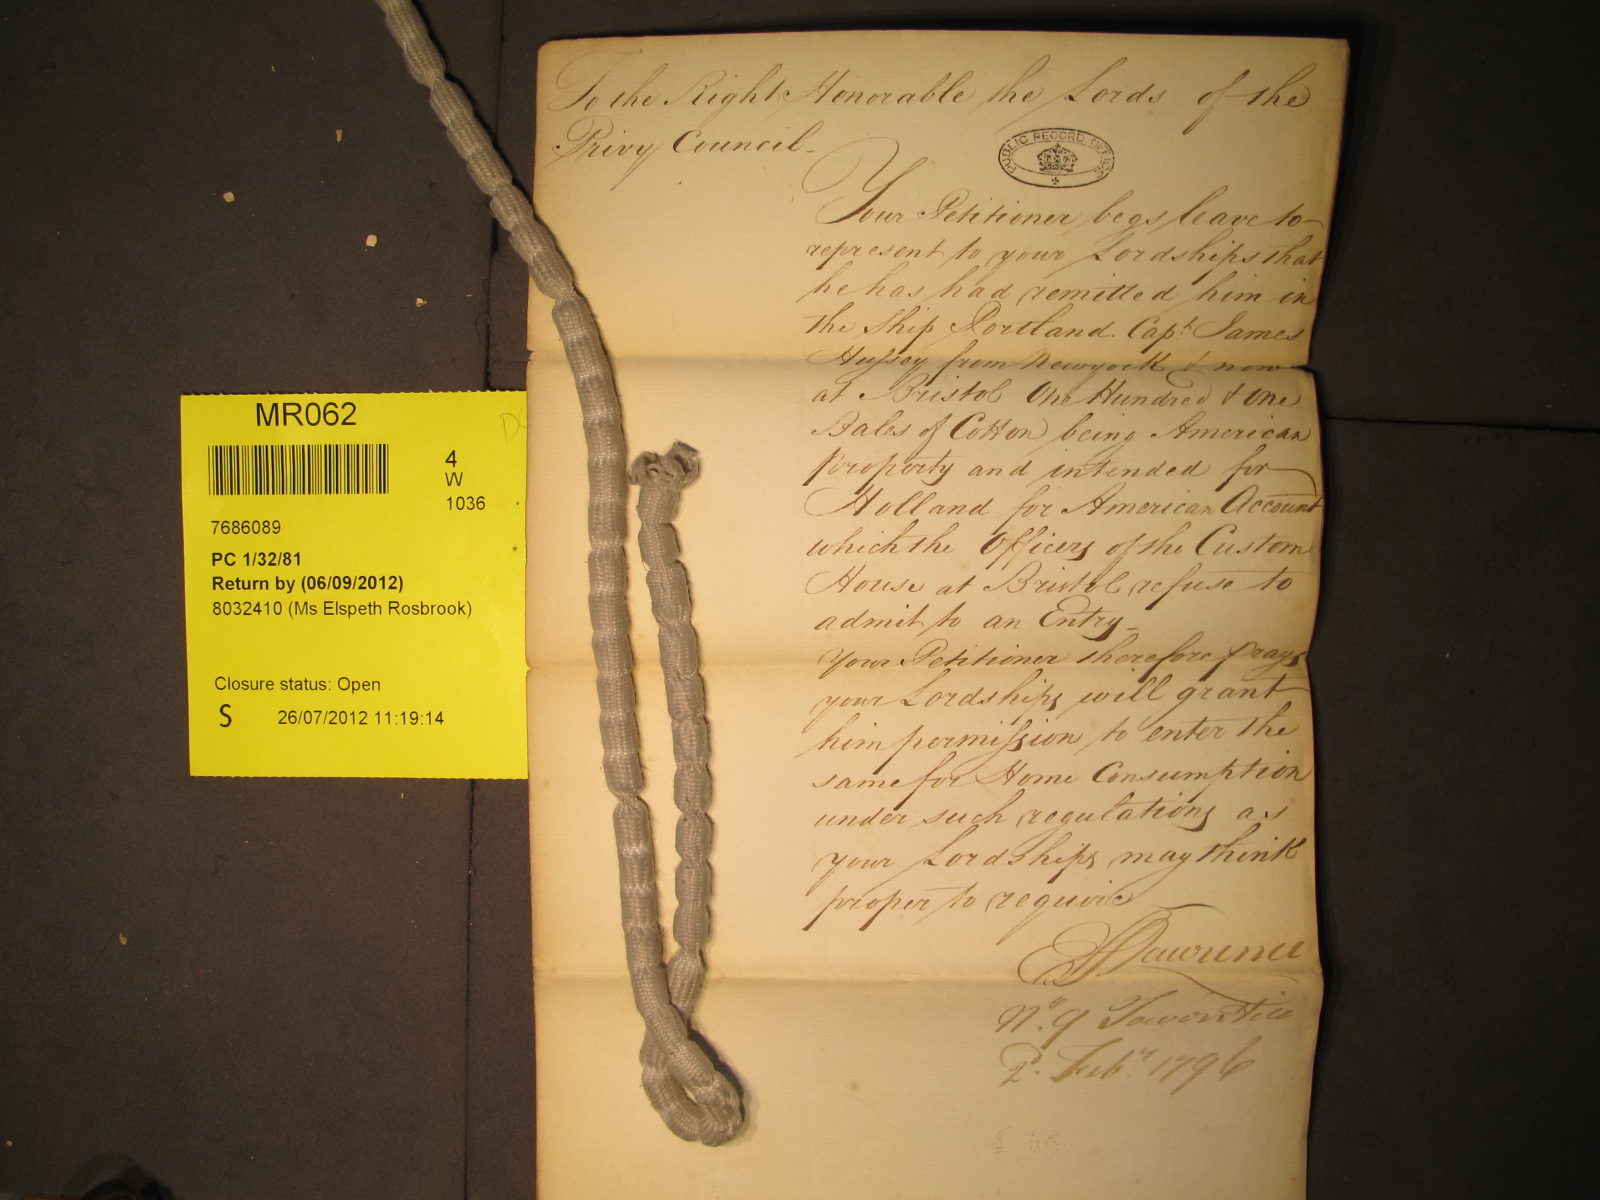 MR062
4
W
1036
7686089
PC 1/32/81
Return by (06/09/2012)
8032410 (Ms Elspeth Rosbrook)
Closure status: Open
S
26/07/2012 11:19:14
To the Right Honorable the Lords of the
Privy Council -
PUBLIC RECORD OFFICE
Your Petitioner begs leave to
represent to your Lordships that
he has had remitted him in
the Ship Portland Capt. James
Hussey from Newyork & now
at Bristol One Hundred & One
Bales of Cotton being American
property and intended for
Holland for American Account
which the Officers of the Custom
House at Bristol refuse to
admit to an Entry -
Your Petitioner therefore prays
your Lordships will grant
him permission to enter the
same for Home Consumption
under such regulations as
your Lordships may think
proper to require
Lawrence
No. 9 Tower Hill
2d. Feby. 1796